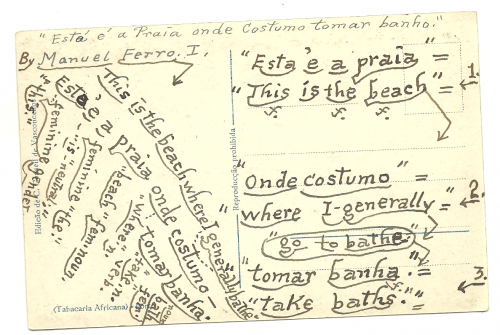 "Está é a Praia onde Costumo tomar banho."
By Manuel Ferro. I.
"Esta é a praia" =
"This is the beach" = 1.
"Onde costumo" =
where I-generally = 2.
"go to bathe."
"tomar banha. =
"take baths." 3.
This is the beach where I generally bathe.
Está é a praia onde costumo -
tomar banha.
feminine "the"
"beach" feminouy.
"where" n.
verb
feminine gender
"the"
- is "neutral"
Reproducção prohibida
Edição de
(Tabacaria Africana)